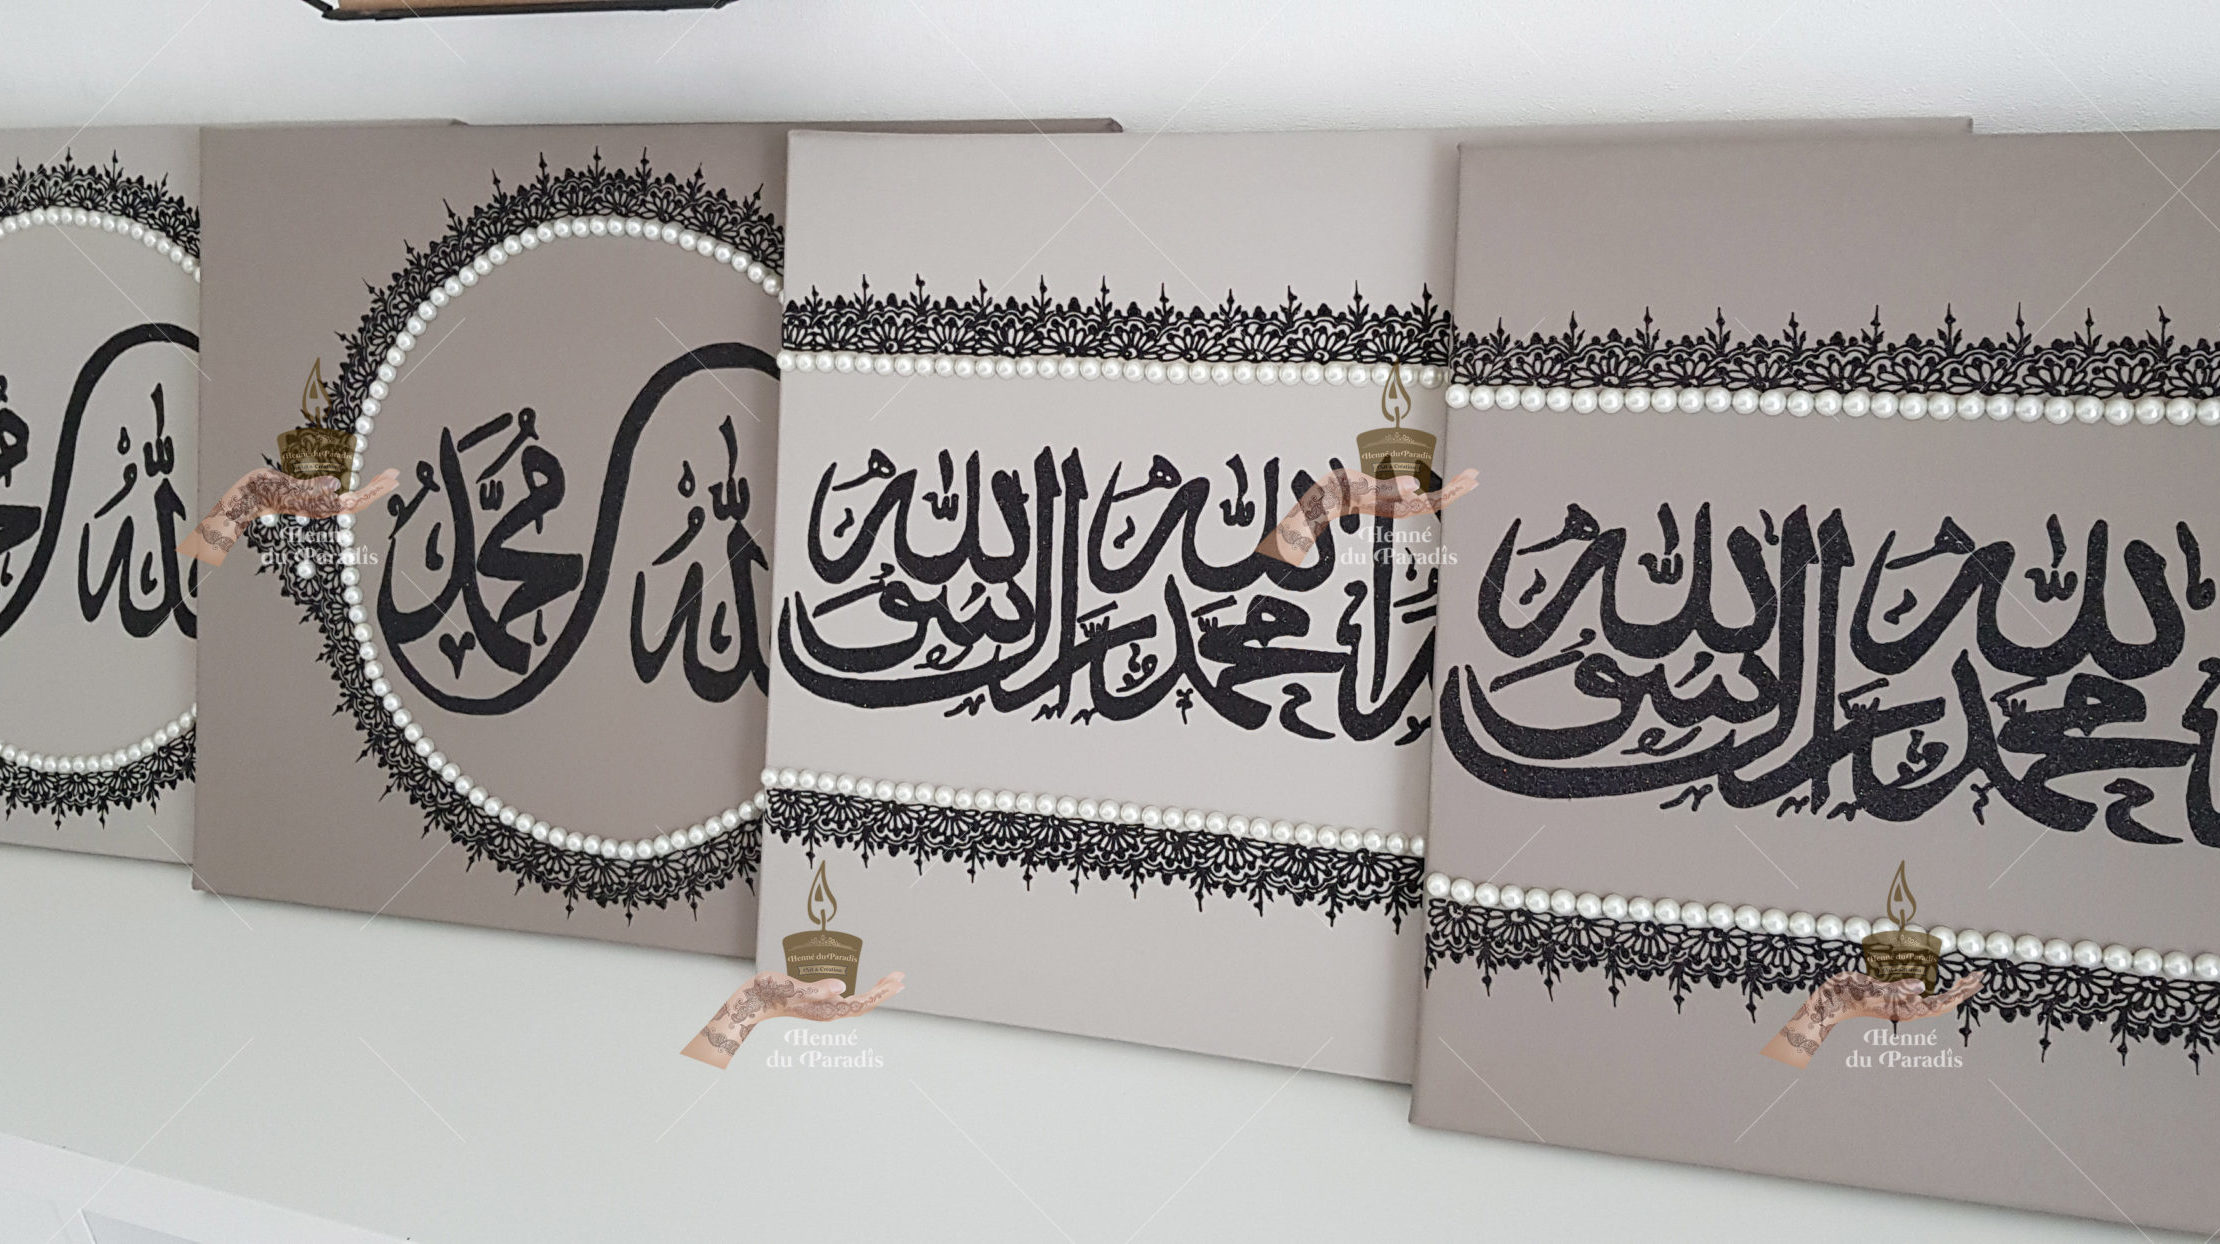 الله
محمد
الله
لا إله إلا الله
محمد رسول الله
الله
محمد رسول الله
Henné du Paradis
Art & Création
Henné
du Paradis
Henné du Paradis
Art & Création
Henné
du Paradis
Henné du Paradis
Art & Création
Henné
du Paradis
Henné du Paradis
Henné
du Paradis